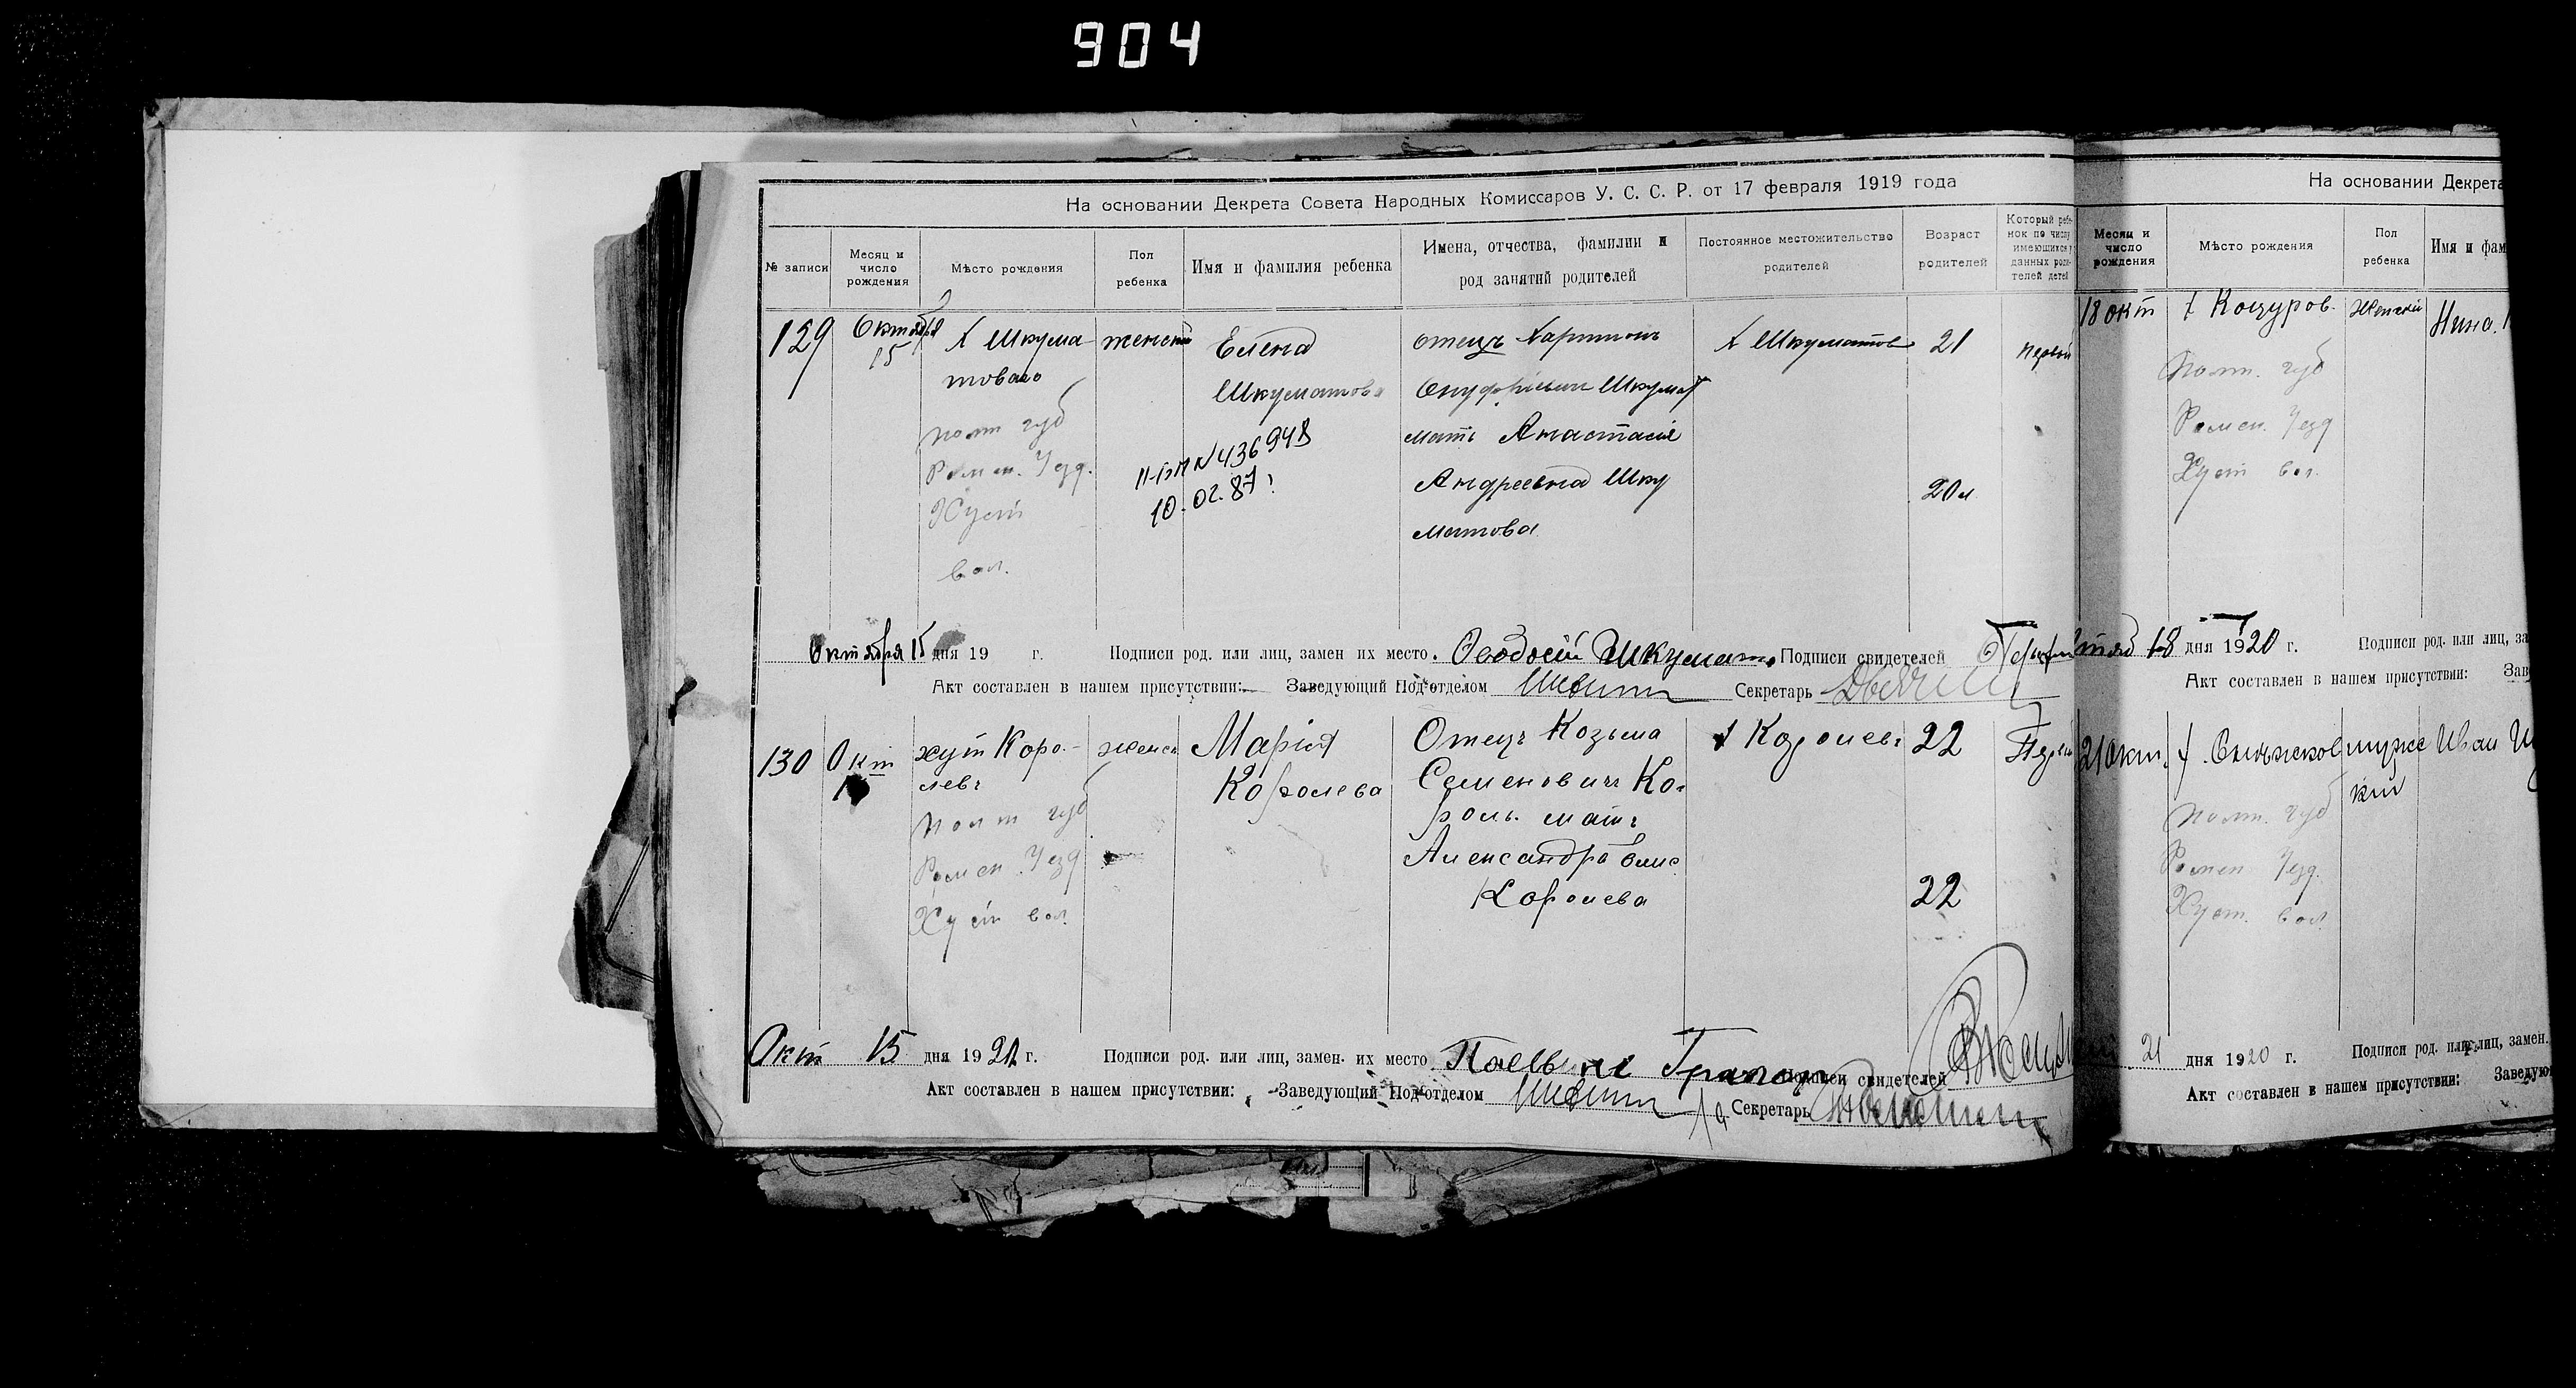 904
На основании Декрета Совета Народных Комиссаров У. С. С. Р. от 17 февраля 1919 года
№ записи
Месяц и
число
рождения
Мѣсто рождения
Пол
ребенка
Имя и фамилия ребенка
Имена, отчества, фамилии и
род занятий родителей
Постоянное местожительство
родителей
Возраст
родителей
Который ребе-
нок по числу
имеющихся у
данных роди-
телей детей
129
Октября
15
х Шкума-
товаго
Полт губ
Ромен. Уезд.
Хуст
вол.
женскій
Елена
Шкуматова
II-БМ N 436948
10.02.87
отецъ Харитонъ
Онуфріевич Шкумат
мать Анастасія
Андреевна Шку
матова
х Шкуматов
21
20 л
первый
Октября 15 дня 19 г.
Подписи род. или лиц, замен их место. Феодосій Шкумат
Подписи свидетелей
Акт составлен в нашем присутствии:
Заведующий Под‘отделом
Секретарь
130
Окт
15
хут Коро-
левъ
Полт губ
Ромен. Уезд
Хуст вол.
женск
Марія
Королева
Отецъ Козьма
Семеновичъ Ко-
роль. мать
Александра
Королева
х Королевъ
22
22
Окт 15 дня 1921 г.
Подписи род. или лиц, замен. их место
Подписи свидетелей
Акт составлен в нашем присутствии:
Заведующий Под‘отделом
Секретарь
На основании Декрета
Месяц и
число
рождения
Мѣсто рождения
Пол
ребенка
Имя и фам
18 окт
х Кощуров.
Полт. губ
Ромен. Уезд
Хуст вол.
Женскій
Нина.
18 дня 1920 г.
Подписи род. или лиц, за
Акт составлен в нашем присутствии: Зав
21 Окт.
Полт. губ
Ромен Уезд.
Хуст. вол
мужс
кій
Иван
21 дня 1920 г.
Подписи род. или лиц, замен.
Акт составлен в нашем присутствии: Заведую